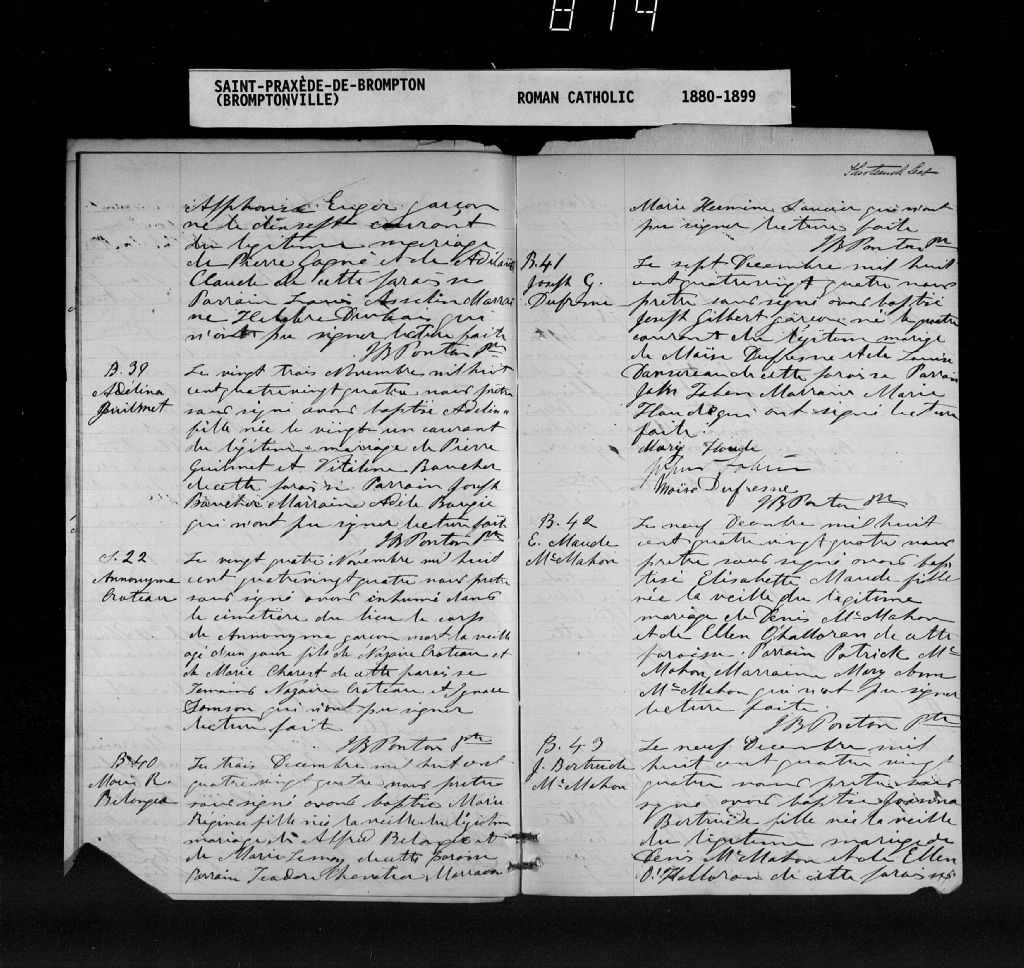 814
SAINT-PRAXÈDE-DE-BROMPTON
(BROMPTONVILLE)
ROMAN CATHOLIC 1880-1899
garçon
né le dix sept courant
du légitime mariage
de Pierre Gagné et de
Claude de cette paroisse
Parrain Louis Asselin Marrai
ne qui
n'ont pu signer lecture faite
JB Ponton Ptre
B. 39
Adelina
Guilmet
Le vingt trois Novembre mil huit
cent quatrevingt quatre nous prêtre
sous signé avons baptisé Adelina
fille née le vingt un courant
du légitime mariage de Pierre
Guilmet et Vitaline Boucher
de cette paroisse. Parrain Joseph
Boucher Marraine Adèle
qui n'ont pu signer lecture faite
JB Ponton Ptre
S. 22
Annonyme
Croteau
Le vingt quatre Novembre mil huit
cent quatrevingt quatre nous prêtre
sous signé avons inhumé dans
le cimetière du lieu le corps
de Annonyme garçon mort la veille
agé d'un jour fils de Nazaire Croteau et
de Marie Charest de cette paroisse
Temoins Nazaire Croteau et Ignace
Samson qui n'ont pu signer
lecture faite
JB Ponton Ptre
B 40
Marie R.
Belanger
Le trois Decembre mil huit cent
quatre vingt quatre nous prêtre
sous signé avons baptisé Marie
Régina fille née la veille du légitime
mariage de Alfred Belanger et
de Marie Lemay de cette paroisse
Parrain Marraine
Thirteenth
Marie Hermine Saucier qui n'ont
pu signer lecture faite
JB Ponton ptre
B. 41
Joseph G.
Dufresne
Le sept Decembre mil huit
cent quatrevingt quatre nous
prêtre sous signé avons baptisé
Joseph Gilbert garçon né le quatre
courant du légitime mariage
de Moïse Dufresne et de Louise
Dansereau de cette paroisse Parrain
John Tobin Marraine Marie
Houde qui ont signé lecture
faite.
Mary Houde
John Tobin
Moïse Dufresne
JB Ponton ptre
B. 42
E. Maude
McMahon
Le neuf Decembre mil huit
cent quatre vingt quatre nous
prêtre sous signé avons bap
tisé Elisabeth Maude fille
née la veille du legitime
mariage de Denis McMahon
et de Ellen O'Halloran de cette
paroisse. Parrain Patrick Mc
Mahon Marraine Mary Ann
McMahon qui n'ont pu signer
lecture faite.
JB Ponton Ptre
B. 43
J. Bertrude
McMahon
Le neuf Decembre mil
huit cent quatre vingt
quatre nous prêtre sous
signé avons baptisé
Bertrude fille née la veille
du legitime mariage de
Denis McMahon et de Ellen
O'Halloran de cette paroisse